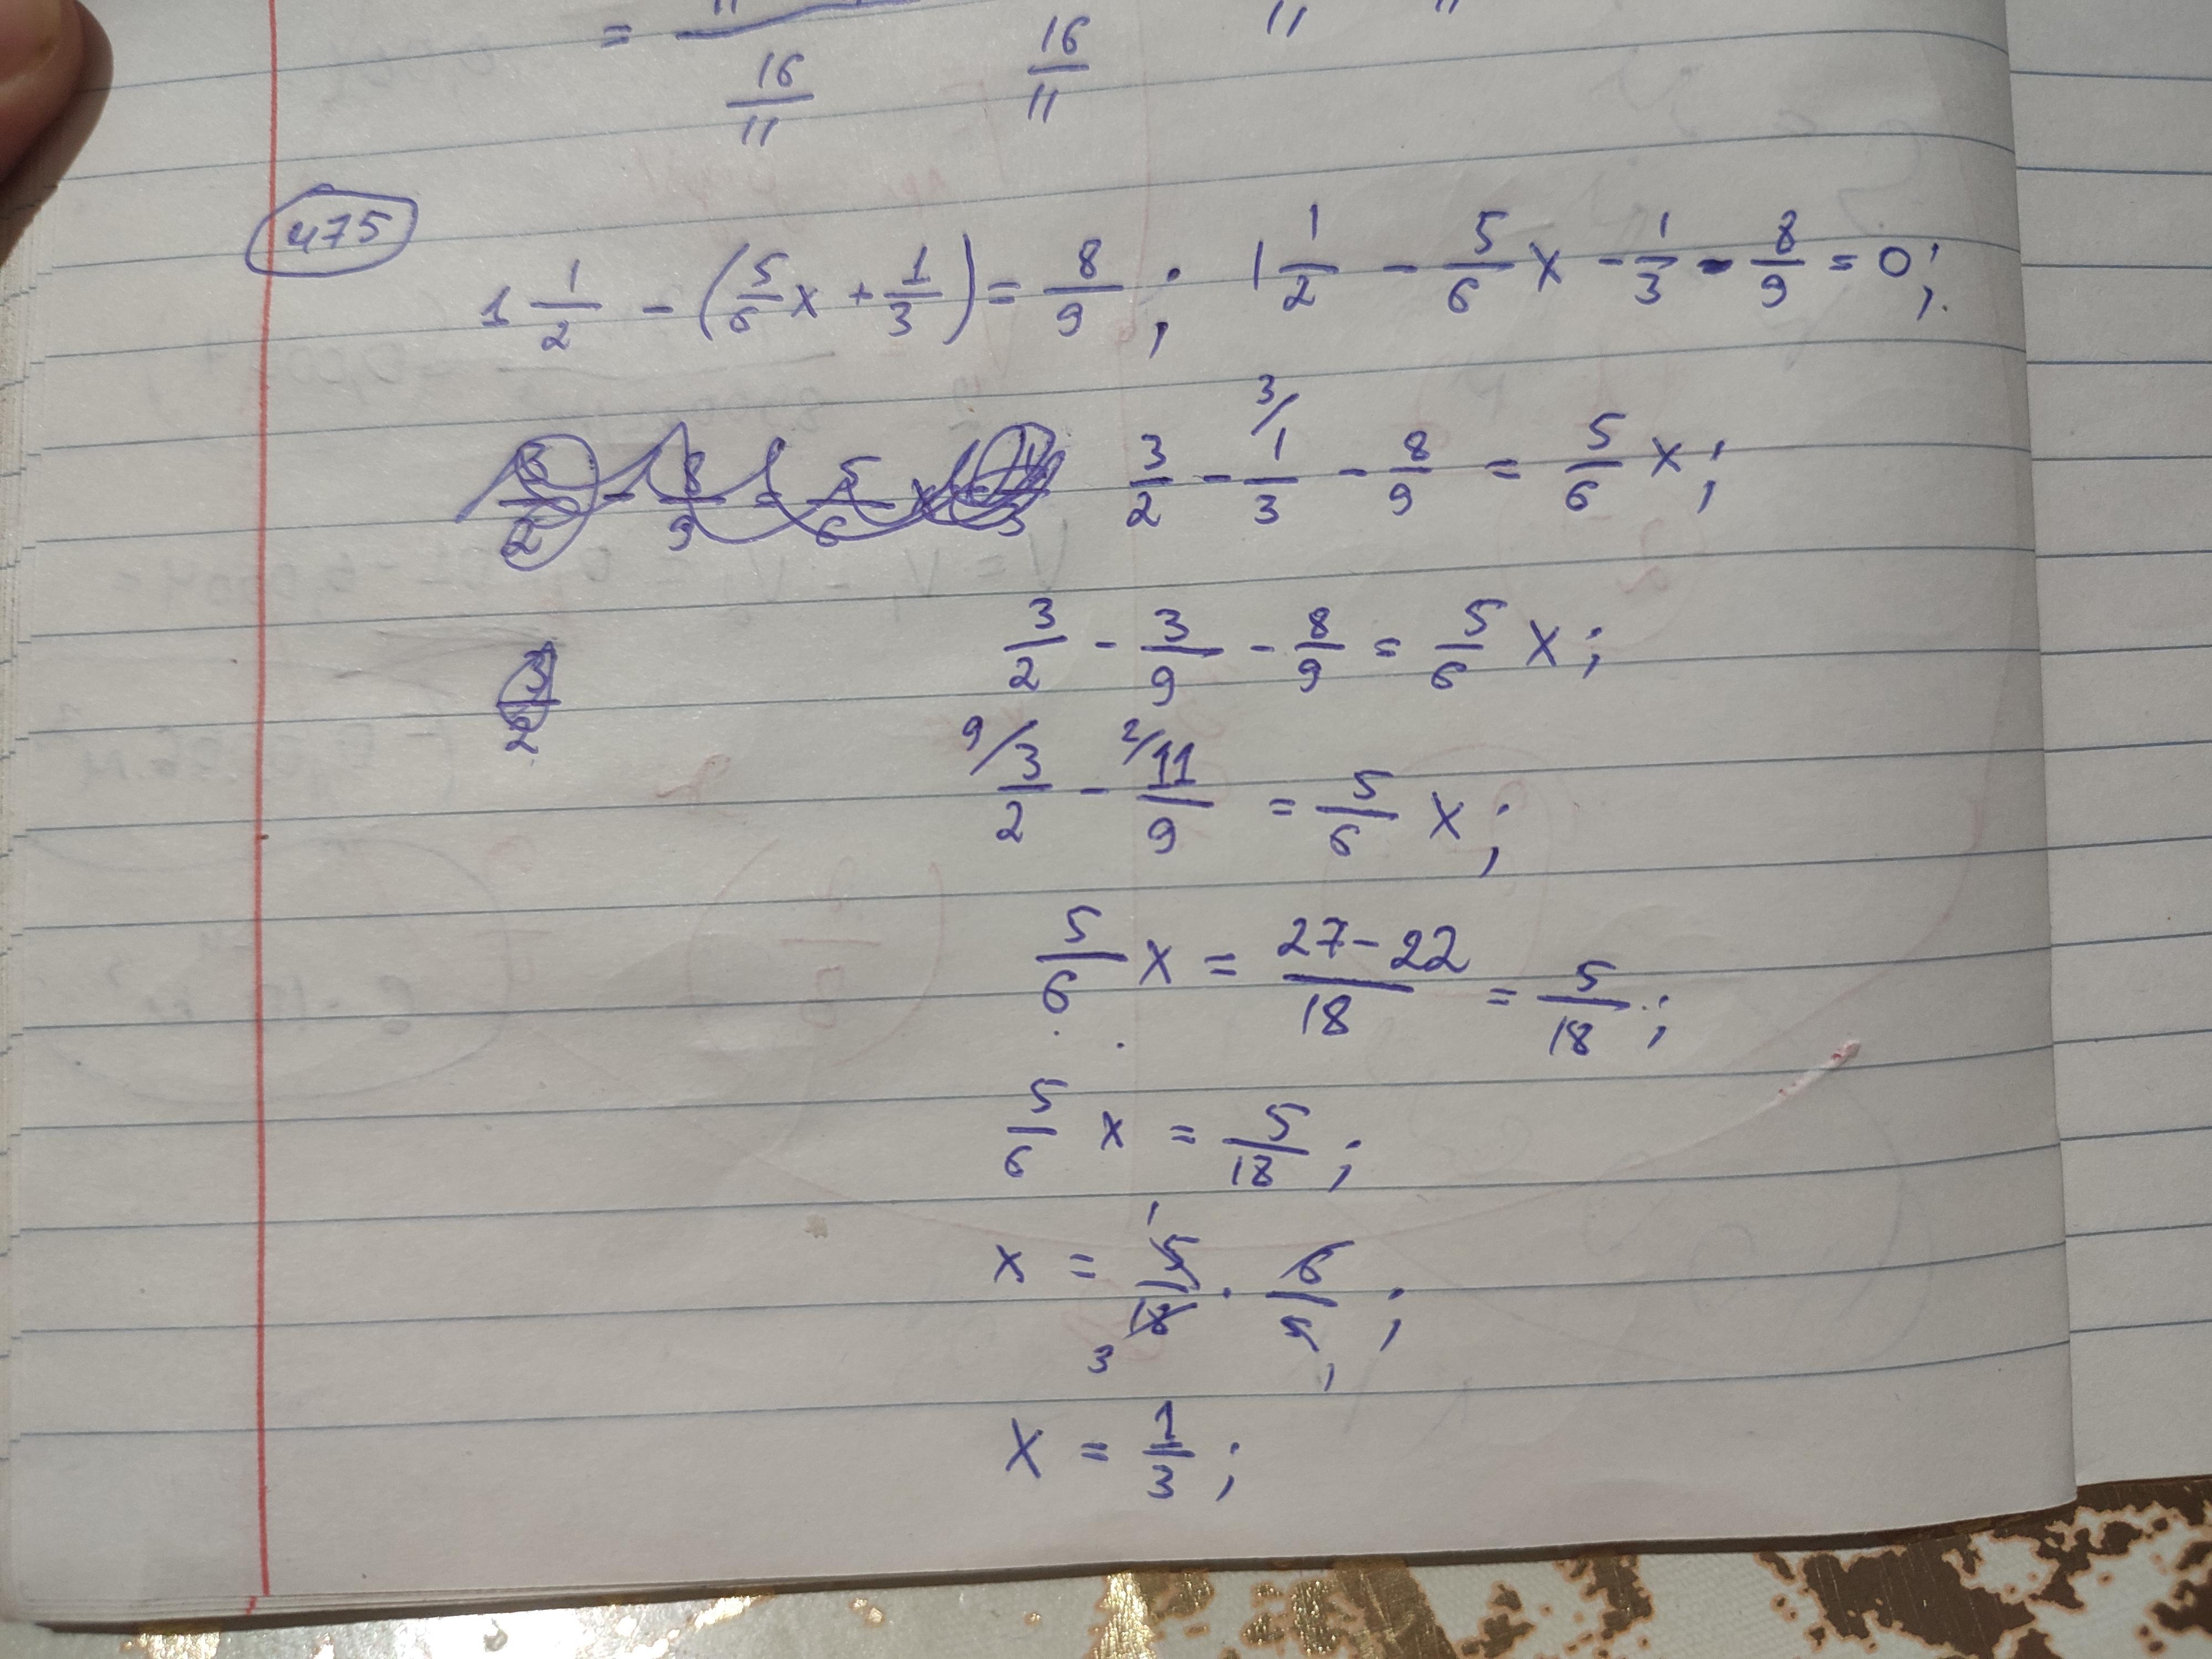 = 11/(16/11) 16/11 11 11
475
1 1/2 - (5/6 x + 1/3) = 8/9 ; 1 1/2 - 5/6 x - 1/3 - 8/9 = 0 ;
3/2 - 8/9 = 5/6 x 3/2 - 3/ 1/3 - 8/9 = 5/6 x ;
3/2 3/2 - 3/9 - 8/9 = 5/6 x ;
9/ 3/2 - 2/ 11/9 = 5/6 x ;
5/6 x = 27-22/18 = 5/18 ;
5/6 x = 5/18 ;
x = 1 5/18 3 · 6/5 1 ;
x = 1/3 ;